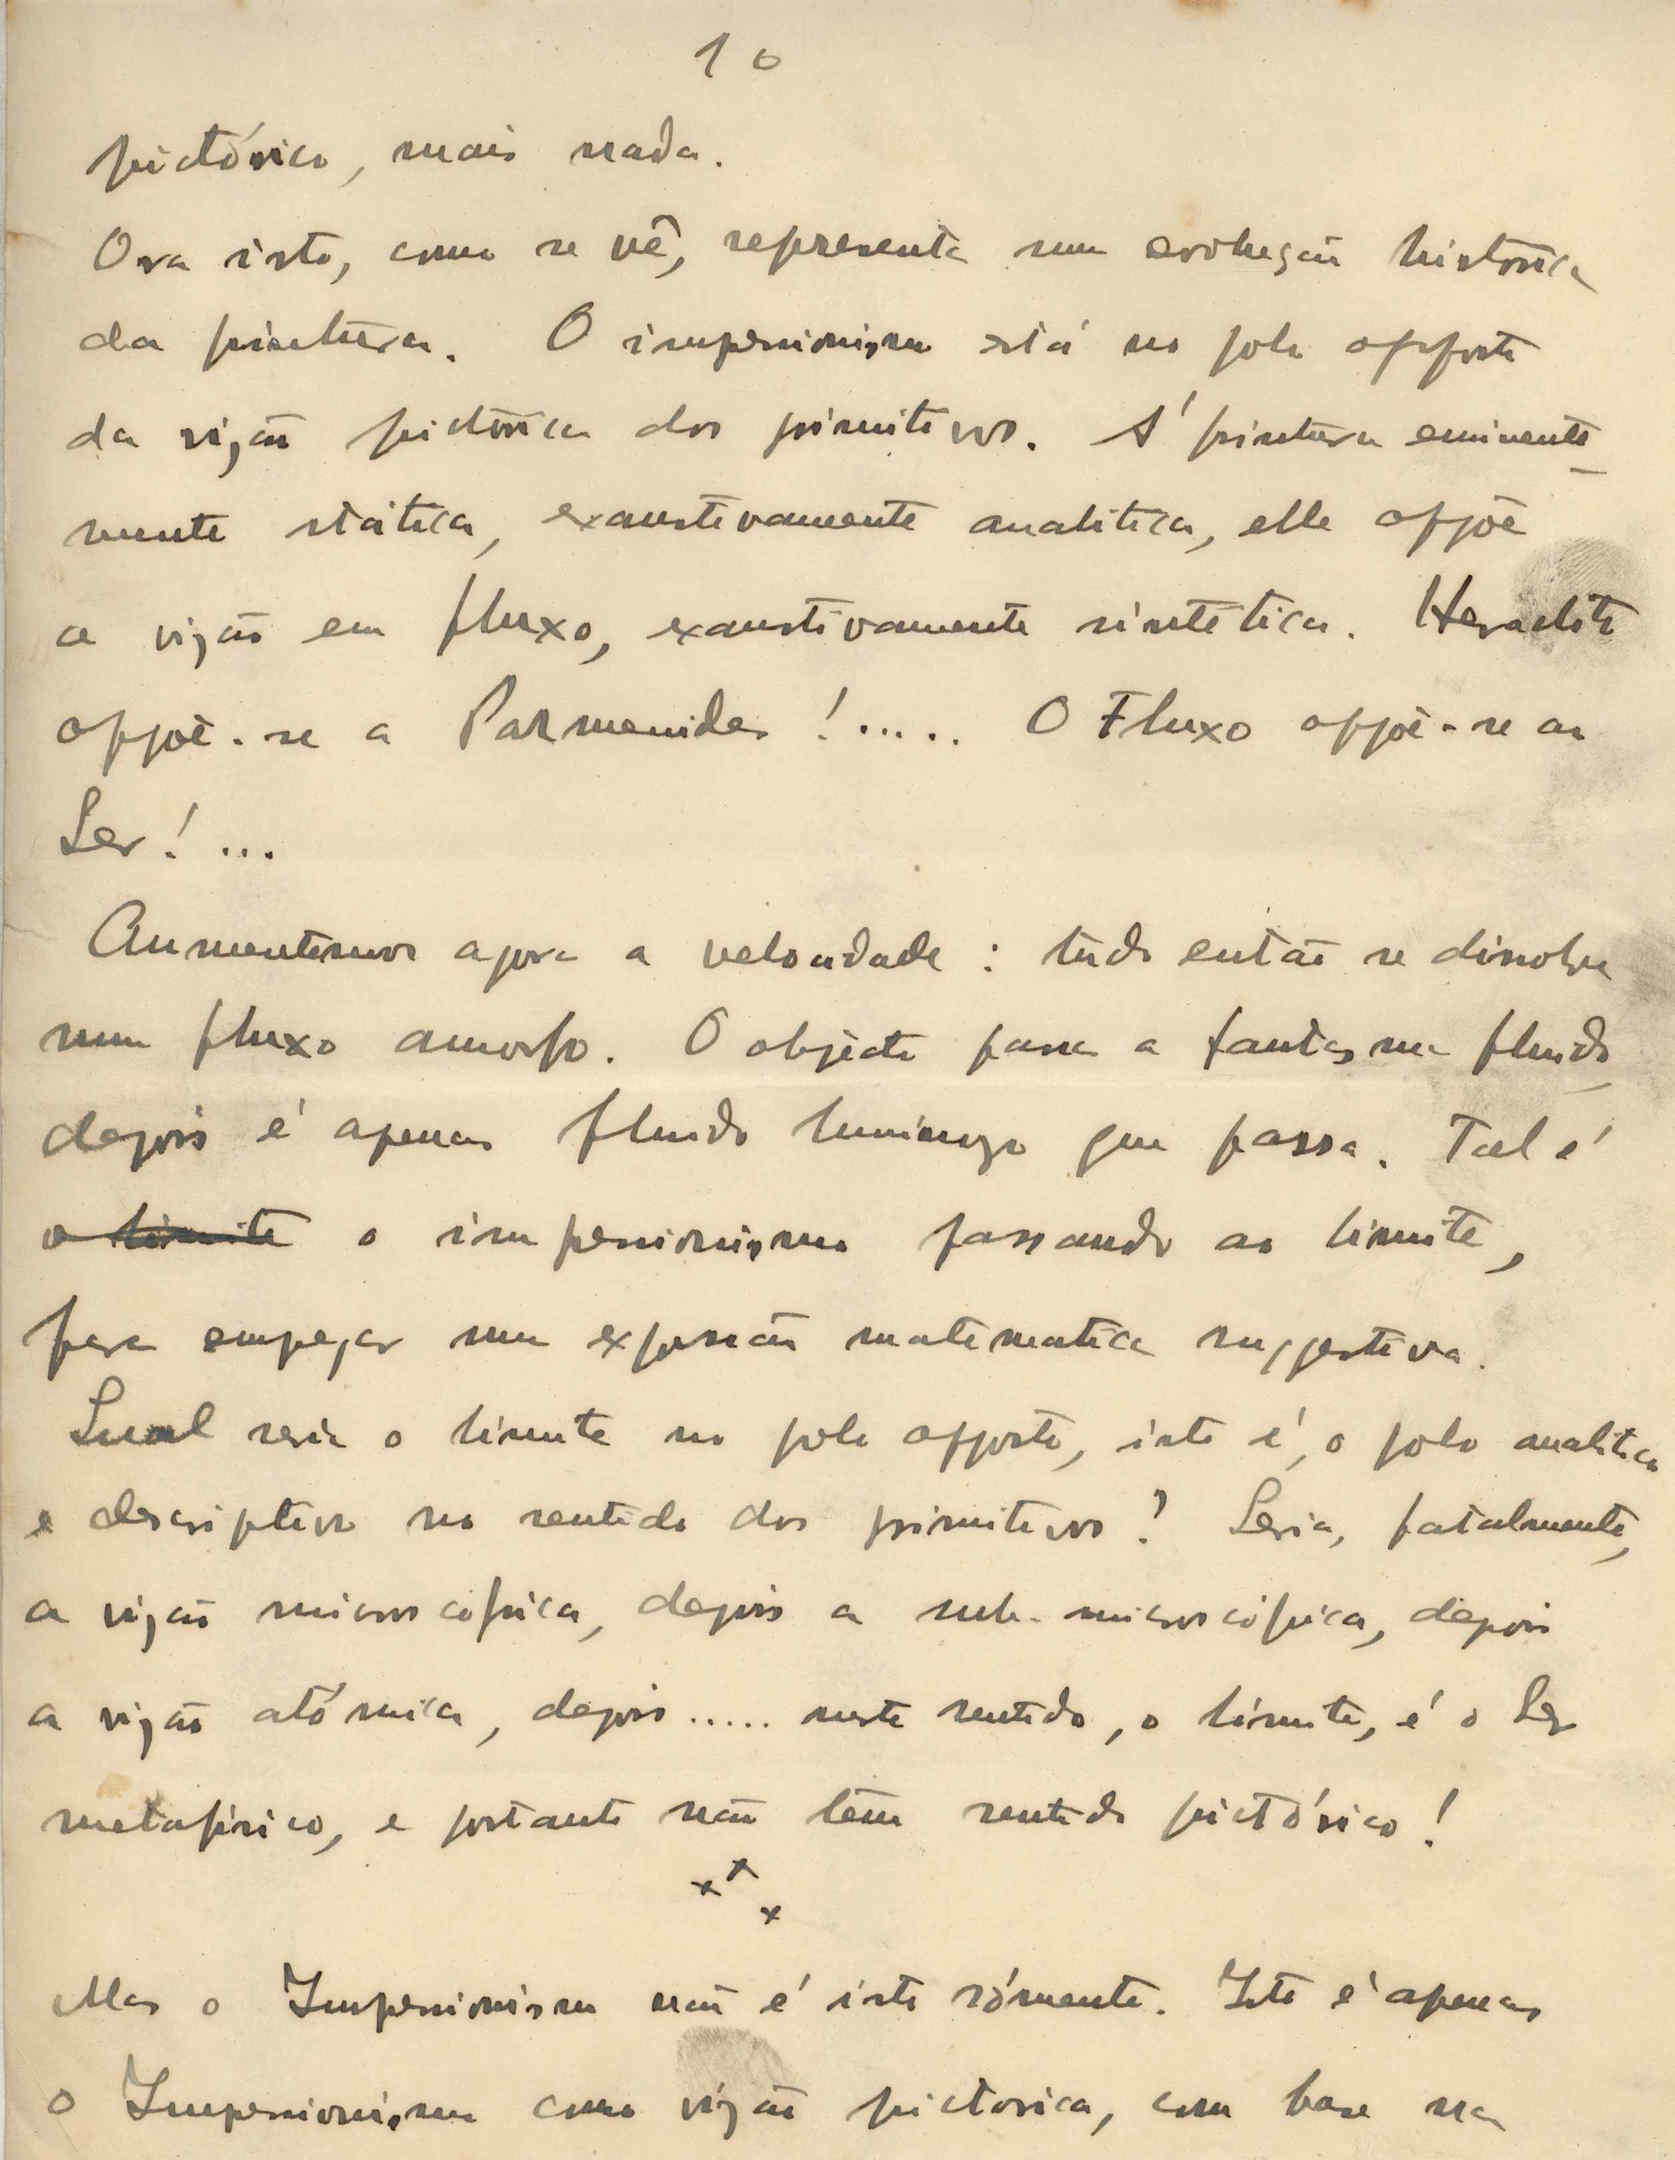 10
pictórico, mais nada.
Ora isto, como se vê, representa uma evolução historica
da pintura. O impressionismo está no polo opposto
da vizão pictórica dos primitivos. Á pintura eminente-
mente státtica, exaustivamente analitica, elle oppõe
a vizão em fluxo, exaustivamente sintética. Heraclito
oppõe-se a Parmenides!..... O Fluxo oppõe-se ao
Ser!...
Aumentemos agora a velocidade: tudo então se dissolve
num fluxo amorfo. O objécto passa a fantasma fluido,
depois é apenas fluido luminozo que passa. Tal é
o limite o impressionismo passando ao limite,
para empregar uma expressão matematica suggestiva.
Qual seria o limite no polo opposto, isto é, o polo analitico
e descriptivo no sentido dos primitivos? Seria, fatalmente,
a vizão microscópica, depois a sub-microscópica, depois
a vizão atómica, depois..... neste sentido, o limite, é o Ser
metafísico, e portanto não têm sentido pictórico!
x x x
Mas o Impressionismo não é isto sómente. Isto é apenas
o Impressionismo como vizão pictorica, com base na